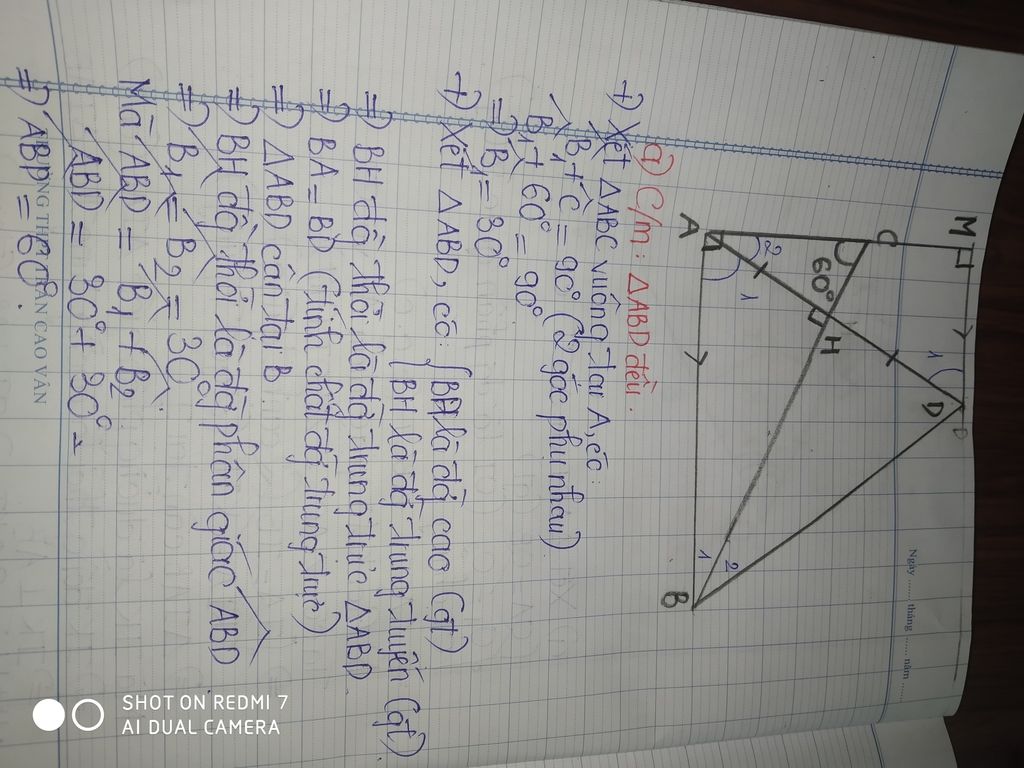 Ngày ........ tháng ........ năm ........
M
D
1
C
60°
H
2
1
A
1
2
B
a) C/m: ΔABD đều.
+) Xét ΔABC vuông tại A, có:
B₁ + C = 90° (2 góc phụ nhau)
B₁ + 60° = 90°
=) B₁ = 30°
+) Xét ΔABD, có: { BH là đg cao (gt)
BH là đg trung tuyến (gt)
=) BH đồng thời là đg trung trực ΔABD
=) BA = BD (tính chất đg trung trực)
=) ΔABD cân tại B
=) BH đồng thời là đg phân giác ABD
=) B₁ = B₂ = 30°
Mà ABD = B₁ + B₂
ABD = 30° + 30°
=) ABD = 60°.
TRẦN CAO VÂN
SHOT ON REDMI 7
AI DUAL CAMERA